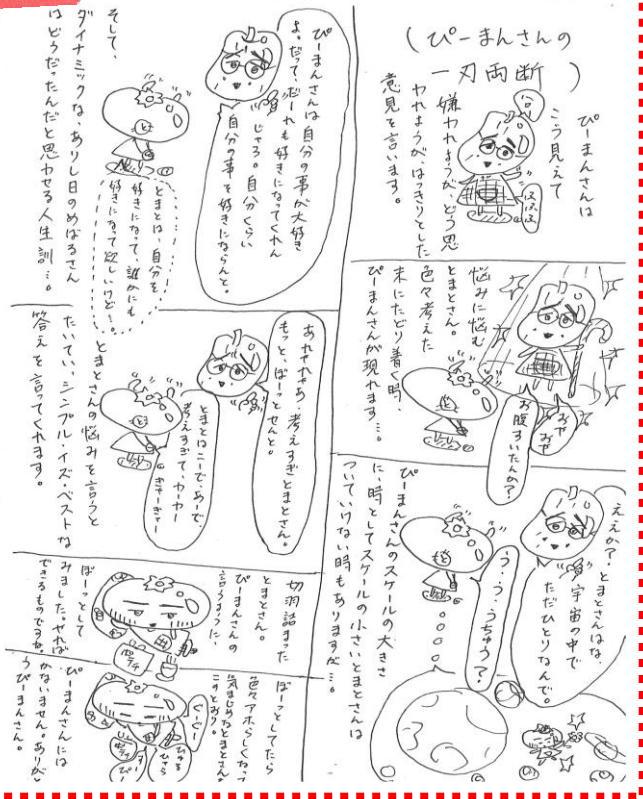 (ぴーまんさんの
一刃両断)
ぴーまんさんは
こう見えて
嫌われようが、どう思
われようが、はっきりとした
意見を言います。
ほほほ
悩みに悩む
とまとさん。
色々考えた
末にたどり着く時、
ぴーまんさんが現れます…。
おや
おや
お腹すいたんか?
ええか?とまとさんはな、
宇宙の中で
ただひとりなんで。
う・う・うちゅう?
ぴーまんさんのスケールの大きさ
に、時としてスケールの小さいとまとさんは
ついていけない時もありますが…。
ぴーまんさんは自分の事が大好き
よ。だって、だーれも好きになってくれん
じゃろ。自分くらい
自分の事を好きにならんと。
とまとは、自分を
好きになって、誰かにも
好きになって欲しいけど…。
そして、
ダイナミックな、ありし日のめばるさん
はどうだったんだと思わせる人生訓…。
あれやれやぁ、考えすぎとまとさん。
もっと、ぼーっとせんと。
とまとはこーで、あーで、
考えすぎて、カーカー
きゃーきゃー
とまとさんの悩みを言うと
たいてい、シンプル・イズ・ベストな
答えを言ってくれます。
切羽詰まった
とまとさん。
ぴーまんさんの
言うように、
ぼーっとして
みました。やれば
できるものですね。
ぼーっとしてたら
色々アホらしくなって
気まじめなとまとさん。
このとおり。
ぐーぐー
ぴーまんさんには
かないません。ありがと
うぴーまんさん。